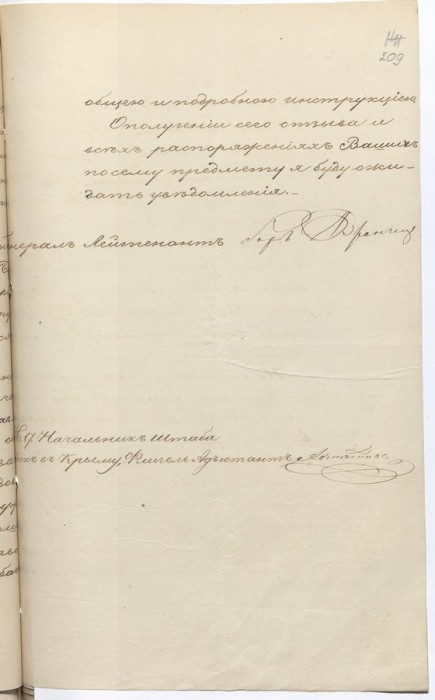 209
общею и подробною инструкціею
Ополученіи сего отзыва и
всѣхъ распоряженіяхъ Вашихъ
по сему предмету я буду ожи-
дать увѣдомленія.
Генералъ Лейтенантъ
Начальникъ штаба
въ Крыму, Флигель Адъютантъ